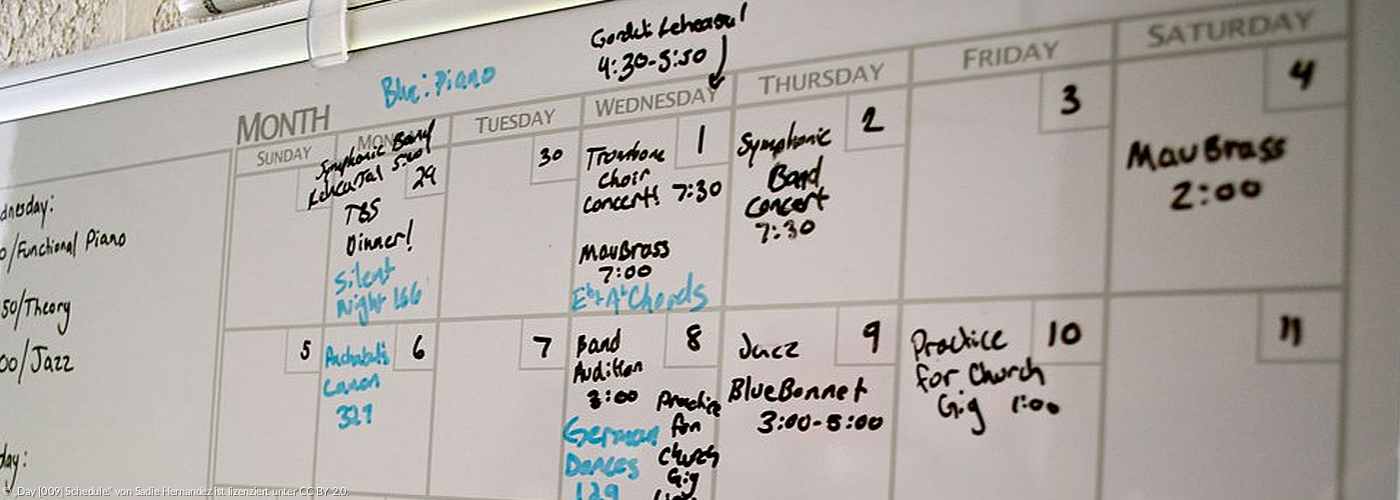 4:30-5:50
Blue: Piano
MONTH
SUNDAY
TUESDAY
WEDNESDAY
THURSDAY
FRIDAY
SATURDAY
Symphonic Band
Rehearsal
29
TBS
Dinner!
Silent
Night 166
30
1
Trombone
choir
concert! 7:30
MavBrass
7:00
Eb+Ab Chords
2
Symphonic
Band
concert
7:30
3
4
MavBrass
2:00
/Functional Piano
50/Theory
00/Jazz
5
6
Canon
329
7
8
Band
Audition
3:00
German
Dances
129
Practice
for
church
Gig
9
Jazz
BlueBonnet
3:00-5:00
10
Practice
for Church
Gig 1:00
11
Day [009] Schedule." von Sadie Hernandez ist lizenziert unter CC BY 2.0.